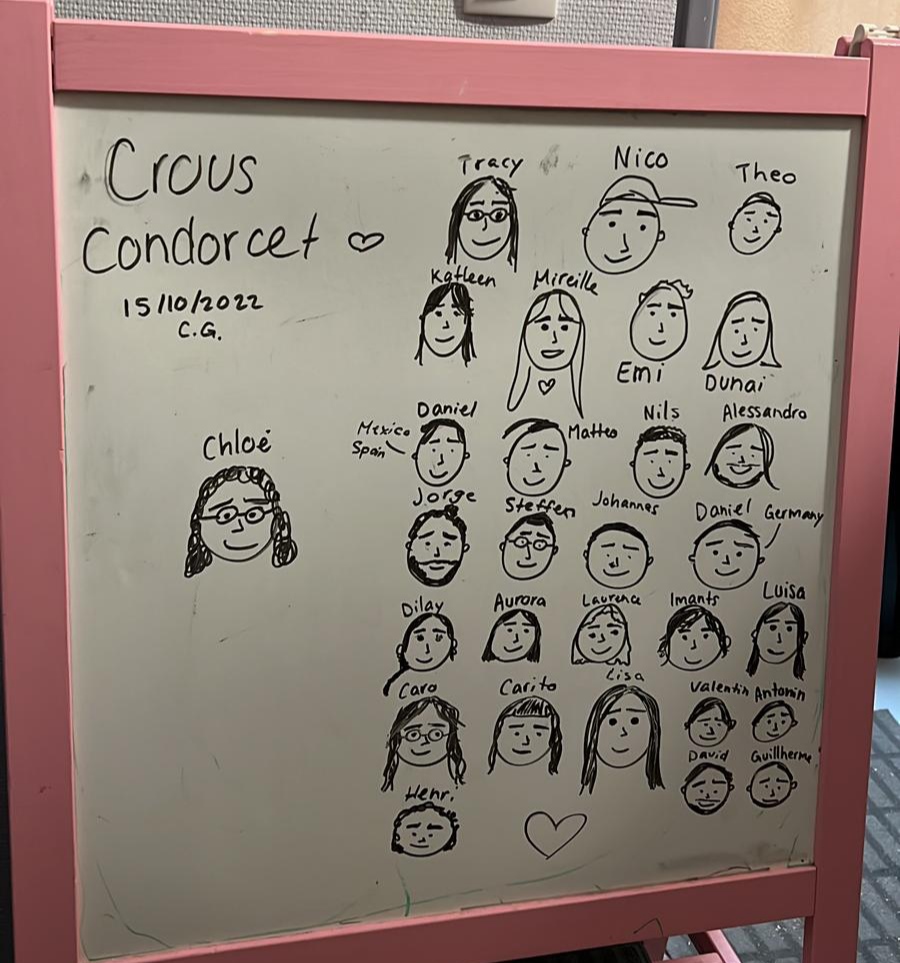 Crous
Condorcet ♡
15/10/2022
C.G.
Chloé
Tracy Nico Theo
Katleen Mireille
Emi Dunai
Daniel Matteo Nils Alessandro
Mexico
Spain
Jorge Steffen Johannes Daniel Germany
Dilay Aurora Laurence Imants Luisa
Caro Carito Lisa Valentin Antonin
David Guillherme
Henri